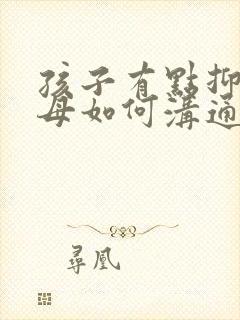 孩子有點抑
母如何溝通
尋凰